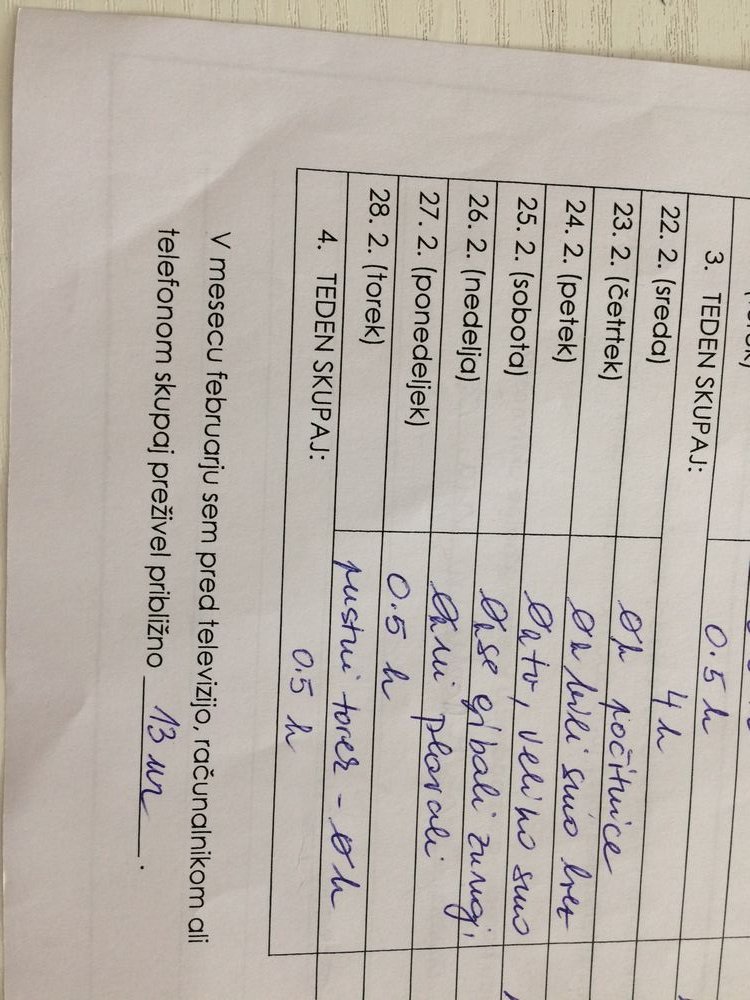 (torek) 0.5 h
3. TEDEN SKUPAJ: 4 h
22. 2. (sreda) 0h počitnice
23. 2. (četrtek) 0h bili smo brez
24. 2. (petek) 0h tv, veliko smo
25. 2. (sobota) 0h se gibali zunaj,
26. 2. (nedelja) 0h in plavali
27. 2. (ponedeljek) 0.5 h
28. 2. (torek) pustni torek - 0 h
4. TEDEN SKUPAJ: 0.5 h
V mesecu februarju sem pred televizijo, računalnikom ali
telefonom skupaj preživel približno 13 ur.